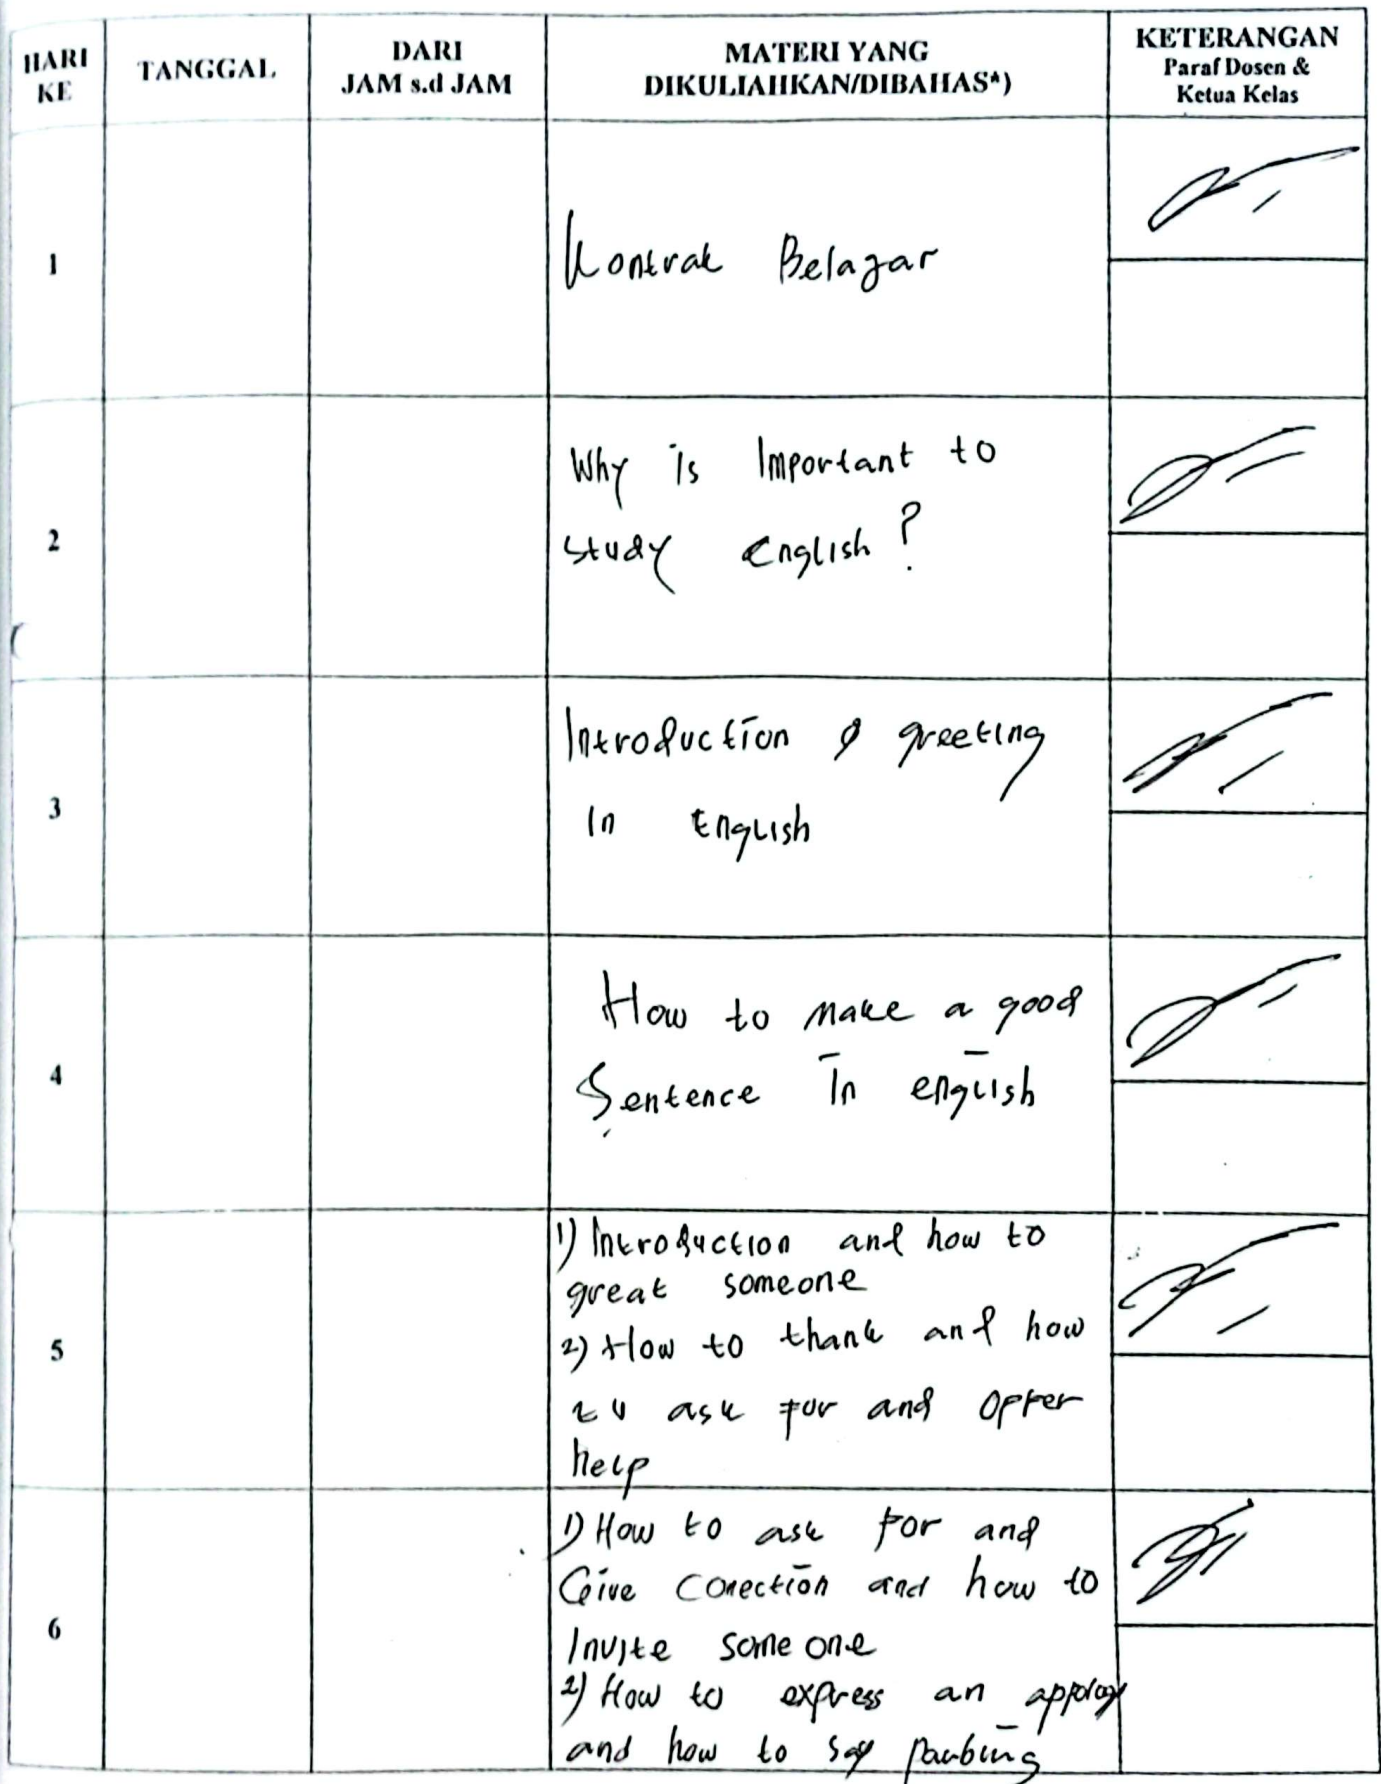 HARI KE
TANGGAL
DARI
JAM s.d JAM
MATERI YANG
DIKULIAHKAN/DIBAHAS*)
KETERANGAN
Paraf Dosen &
Ketua Kelas
1
Kontrak Belajar
2
Why is Important to
study english?
3
Introduction & greeting
In English
4
How to make a good
Sentence In english
5
1) Introduction and how to
great someone
2) How to thank and how
to ask for and offer
help
6
1) How to ask for and
Give conection and how to
Invite some one
2) How to express an
and how to say